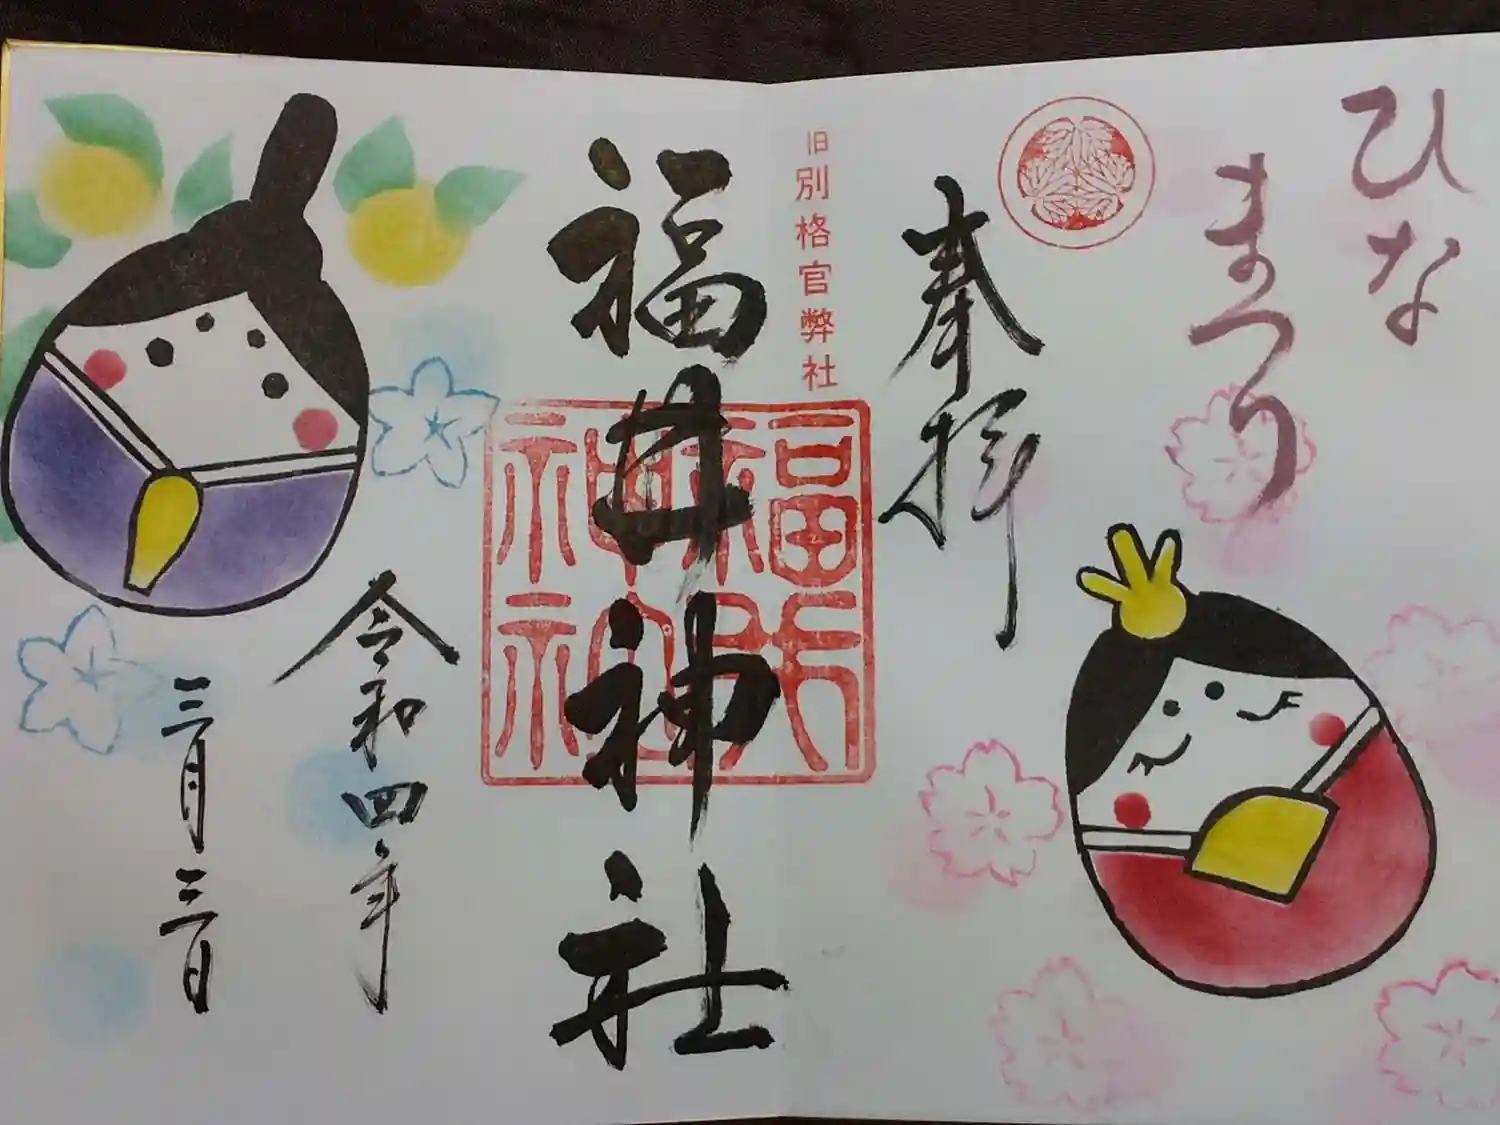 ひな
まつり
奉拝
旧別格官弊社
福井神社
福井
神社
令和四年
三月三日